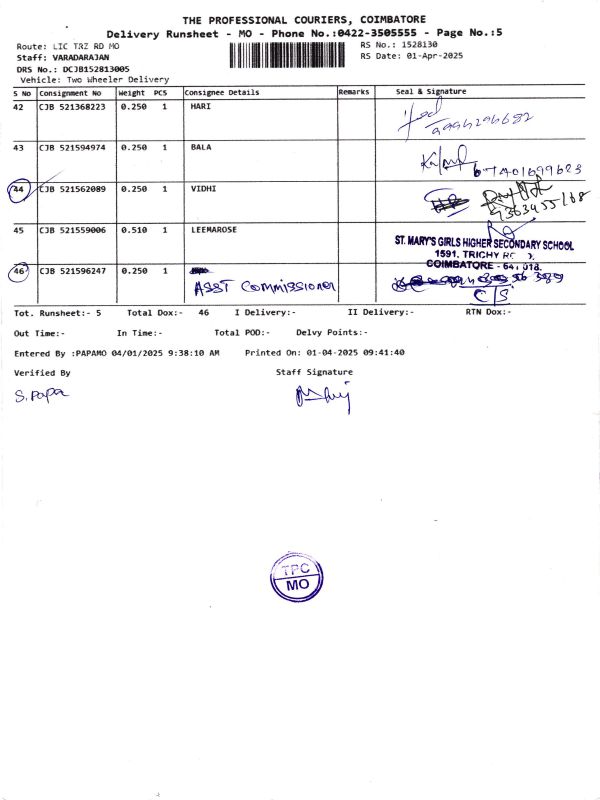 THE PROFESSIONAL COURIERS, COIMBATORE
Delivery Runsheet - MO - Phone No.:0422-3505555 - Page No.:5
Route: LIC TRZ RD MO
RS No.: 1528130
Staff: VARADARAJAN
RS Date: 01-Apr-2025
DRS No.: DCJB152813005
Vehicle: Two Wheeler Delivery
S No Consignment No Weight PCS Consignee Details Remarks Seal & Signature
42 CJB 521368223 0.250 1 HARI
43 CJB 521594974 0.250 1 BALA
44 CJB 521562089 0.250 1 VIDHI
45 CJB 521559006 0.510 1 LEEMAROSE
ST. MARY'S GIRLS HIGHER SECONDARY SCHOOL
1591, TRICHY
COIMBATORE
46 CJB 521596247 0.250 1
ASST Commissioner
C S
Tot. Runsheet:- 5 Total Dox:- 46 I Delivery:- II Delivery:- RTN Dox:-
Out Time:- In Time:- Total POD:- Delvy Points:-
Entered By :PAPAMO 04/01/2025 9:38:10 AM Printed On: 01-04-2025 09:41:40
Verified By Staff Signature
S. Papa
TPC
MO